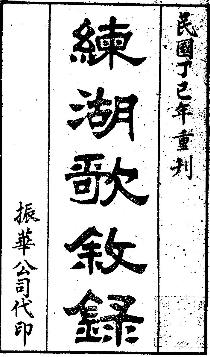 民國丁巳年重刋
練湖歌敘錄
振華公司代印